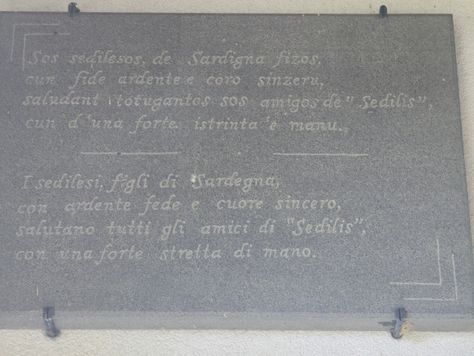 Sos sedilesos, de Sardigna fizos,
cun fide ardente e coro sinzeru,
saludant totugantos sos amigos de "Sedilis",
cun d'una forte istrinta 'e manu.
I sedilesi, figli di Sardegna,
con ardente fede e cuore sincero,
salutano tutti gli amici di "Sedilis",
con una forte stretta di mano.